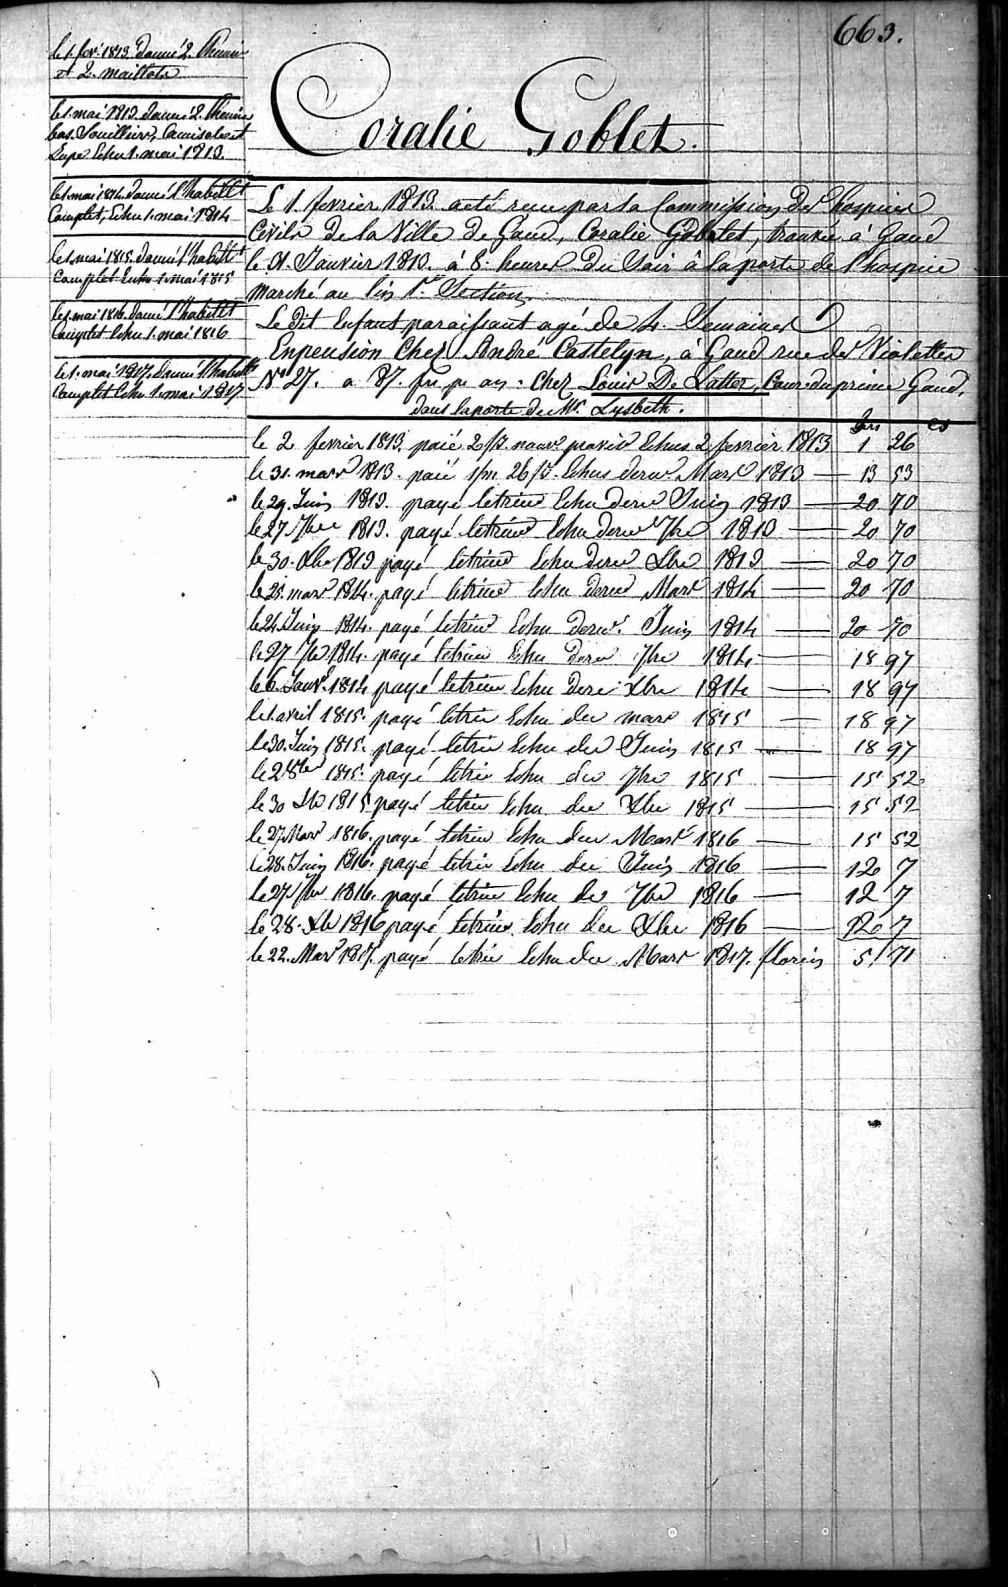 663.
le 1. fev. 1813. donné 2. Chemise
et 2. maillots
le 1. mai 1813. donné 2. Chemise
bas. Souilliers, Camisole et
Jupe Echu 1. mai 1813.
le 1. mai 1814. donné l'habillt
Complet, Echu 1. mai 1814
le 1. mai 1815. donné l'habillt
Complet Echu 1. mai 1815
le 1. mai 1816. donné l'habillt
Complet Echu 1. mai 1816
le 1. mai 1817. donné l'habillt
Complet Echu 1. mai 1817
Coralie Goblet.
Le 1. fevrier 1813. a été reçu par la Commission des hospices
Civils de la Ville de Gand, Coralie Goblet, trouvée à Gand
le 31. Janvier 1813. à 8. heures du Soir à la porte de l'hospice
marché au lin 1.re Section.
Le dit Enfant paraissant agé de 4. Semaines
En pension Chez André Castelyn, à Gand rue des Violettes
N.o 27. a 87. fr. pr an: chez Louis De Latter, Cour du prince Gand,
dans la porte de Mr. Lysbeth.
frs cs
le 2 fevrier 1813. paié Echus 2 fevrier 1813 1 26
le 31. mars 1813. paié Echus dern. Mars 1813 13 53
le 29. Juin 1813. payé le trim Echu dern Juin 1813 20 70
le 27 7bre 1813. payé le trim Echu dern 7bre 1813 20 70
le 30. Xbre 1813 payé le trim Echu dern Xbre 1813 20 70
le 28. mars 1814. payé le trim Echu dern Mars 1814 20 70
le 24. Juin 1814. payé le trim Echu dern. Juin 1814 20 70
le 27 7bre 1814. payé le trim Echu dern 7bre 1814 18 97
le 6. Janv. 1814 payé le trim Echu dern Xbre 1814 18 97
le 1. avril 1815. payé le trim Echu der mars 1815 18 97
le 30. Juin 1815. payé le trim Echu der Juin 1815 18 97
le 2 8bre 1815. payé le trim Echu der 7bre 1815 15 52
le 30 Xbre 1815 payé le trim Echu der Xbre 1815 15 52
le 27 Mars 1816. payé le trim Echu der Mars 1816 15 52
le 28. Juin 1816. payé le trim Echu der Juin 1816 12 7
le 27 7bre 1816. payé le trim Echu der 7bre 1816 12 7
le 28. Xbre 1816 payé le trim. Echu der Xbre 1816 12 7
le 22. Mars 1817. payé le trim Echu der Mars 1817. florins 5. 71